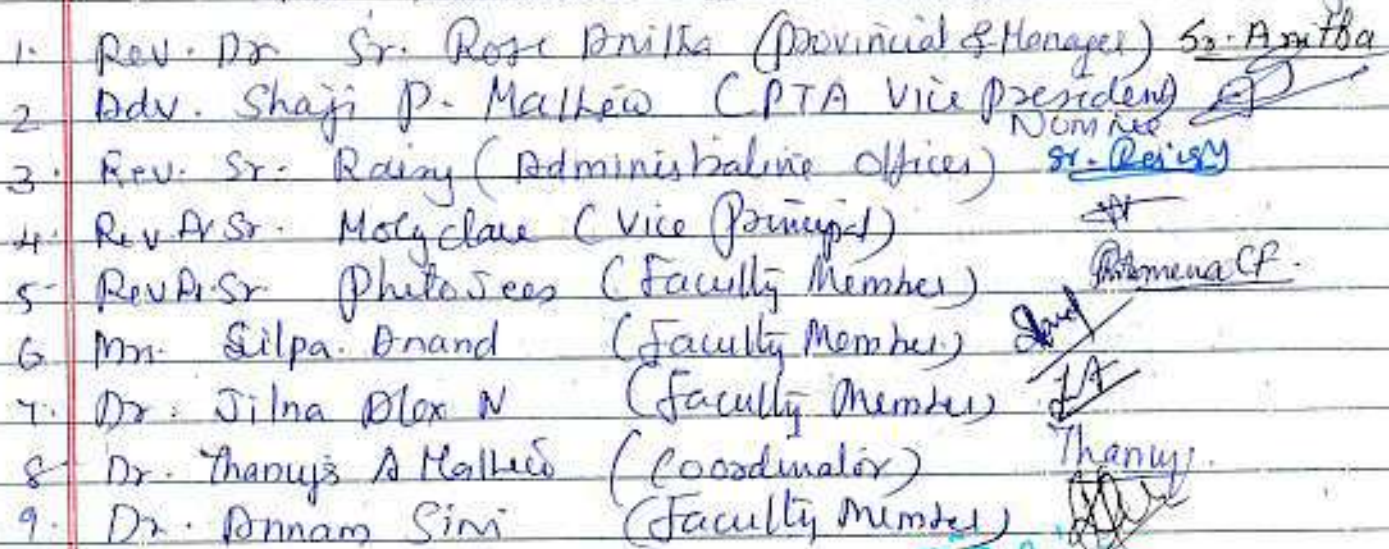 1. Rev. Dr Sr. Rose Anitha (Provincial & Manager) Sr. Anitha
2 Adv. Shaji P. Mathew (PTA Vice President)
Nominee
3. Rev. Sr. Raisy (Administrative Officer) Sr. Reisy
4. Rev Dr Sr. Molyclare (Vice Principal)
5 Rev Dr Sr Philo Jees (Faculty Member) Philomena CP.
6 Silpa. Anand (Faculty Member)
7. Dr. Jilna Alex N (Faculty Member) JA
8 Dr. Thanuja A Mathew (Coordinator) Thanuj.
9. Dr. Annam Sini (Faculty Member)